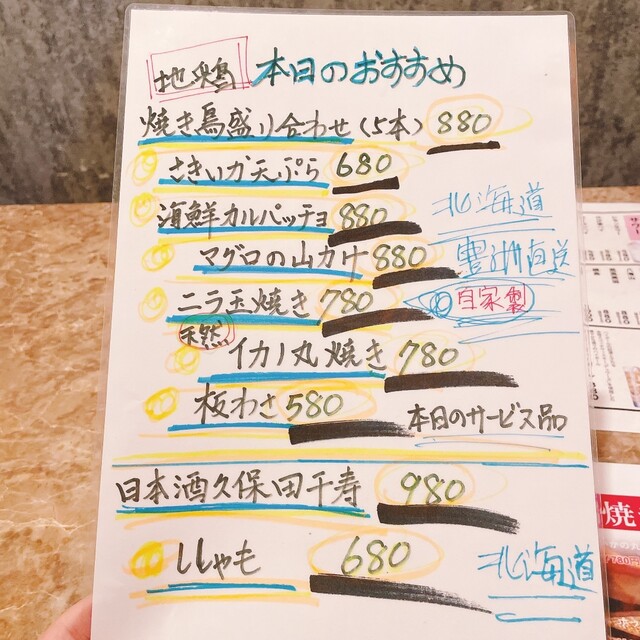 地鶏 本日のおすすめ
焼き鳥盛り合わせ(5本) 880
さきいか天ぷら 680
海鮮カルパッチョ 880 北海道
マグロの山カケ 880 豊洲直送
ニラ玉焼き 780 自家製
天然
イカノ丸焼き 780
板わさ 580 本日のサービス品
日本酒久保田千寿 980
ししゃも 680 北海道
焼